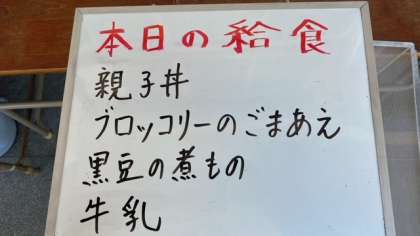 本日の給食
親子丼
ブロッコリーのごまあえ
黒豆の煮もの
牛乳